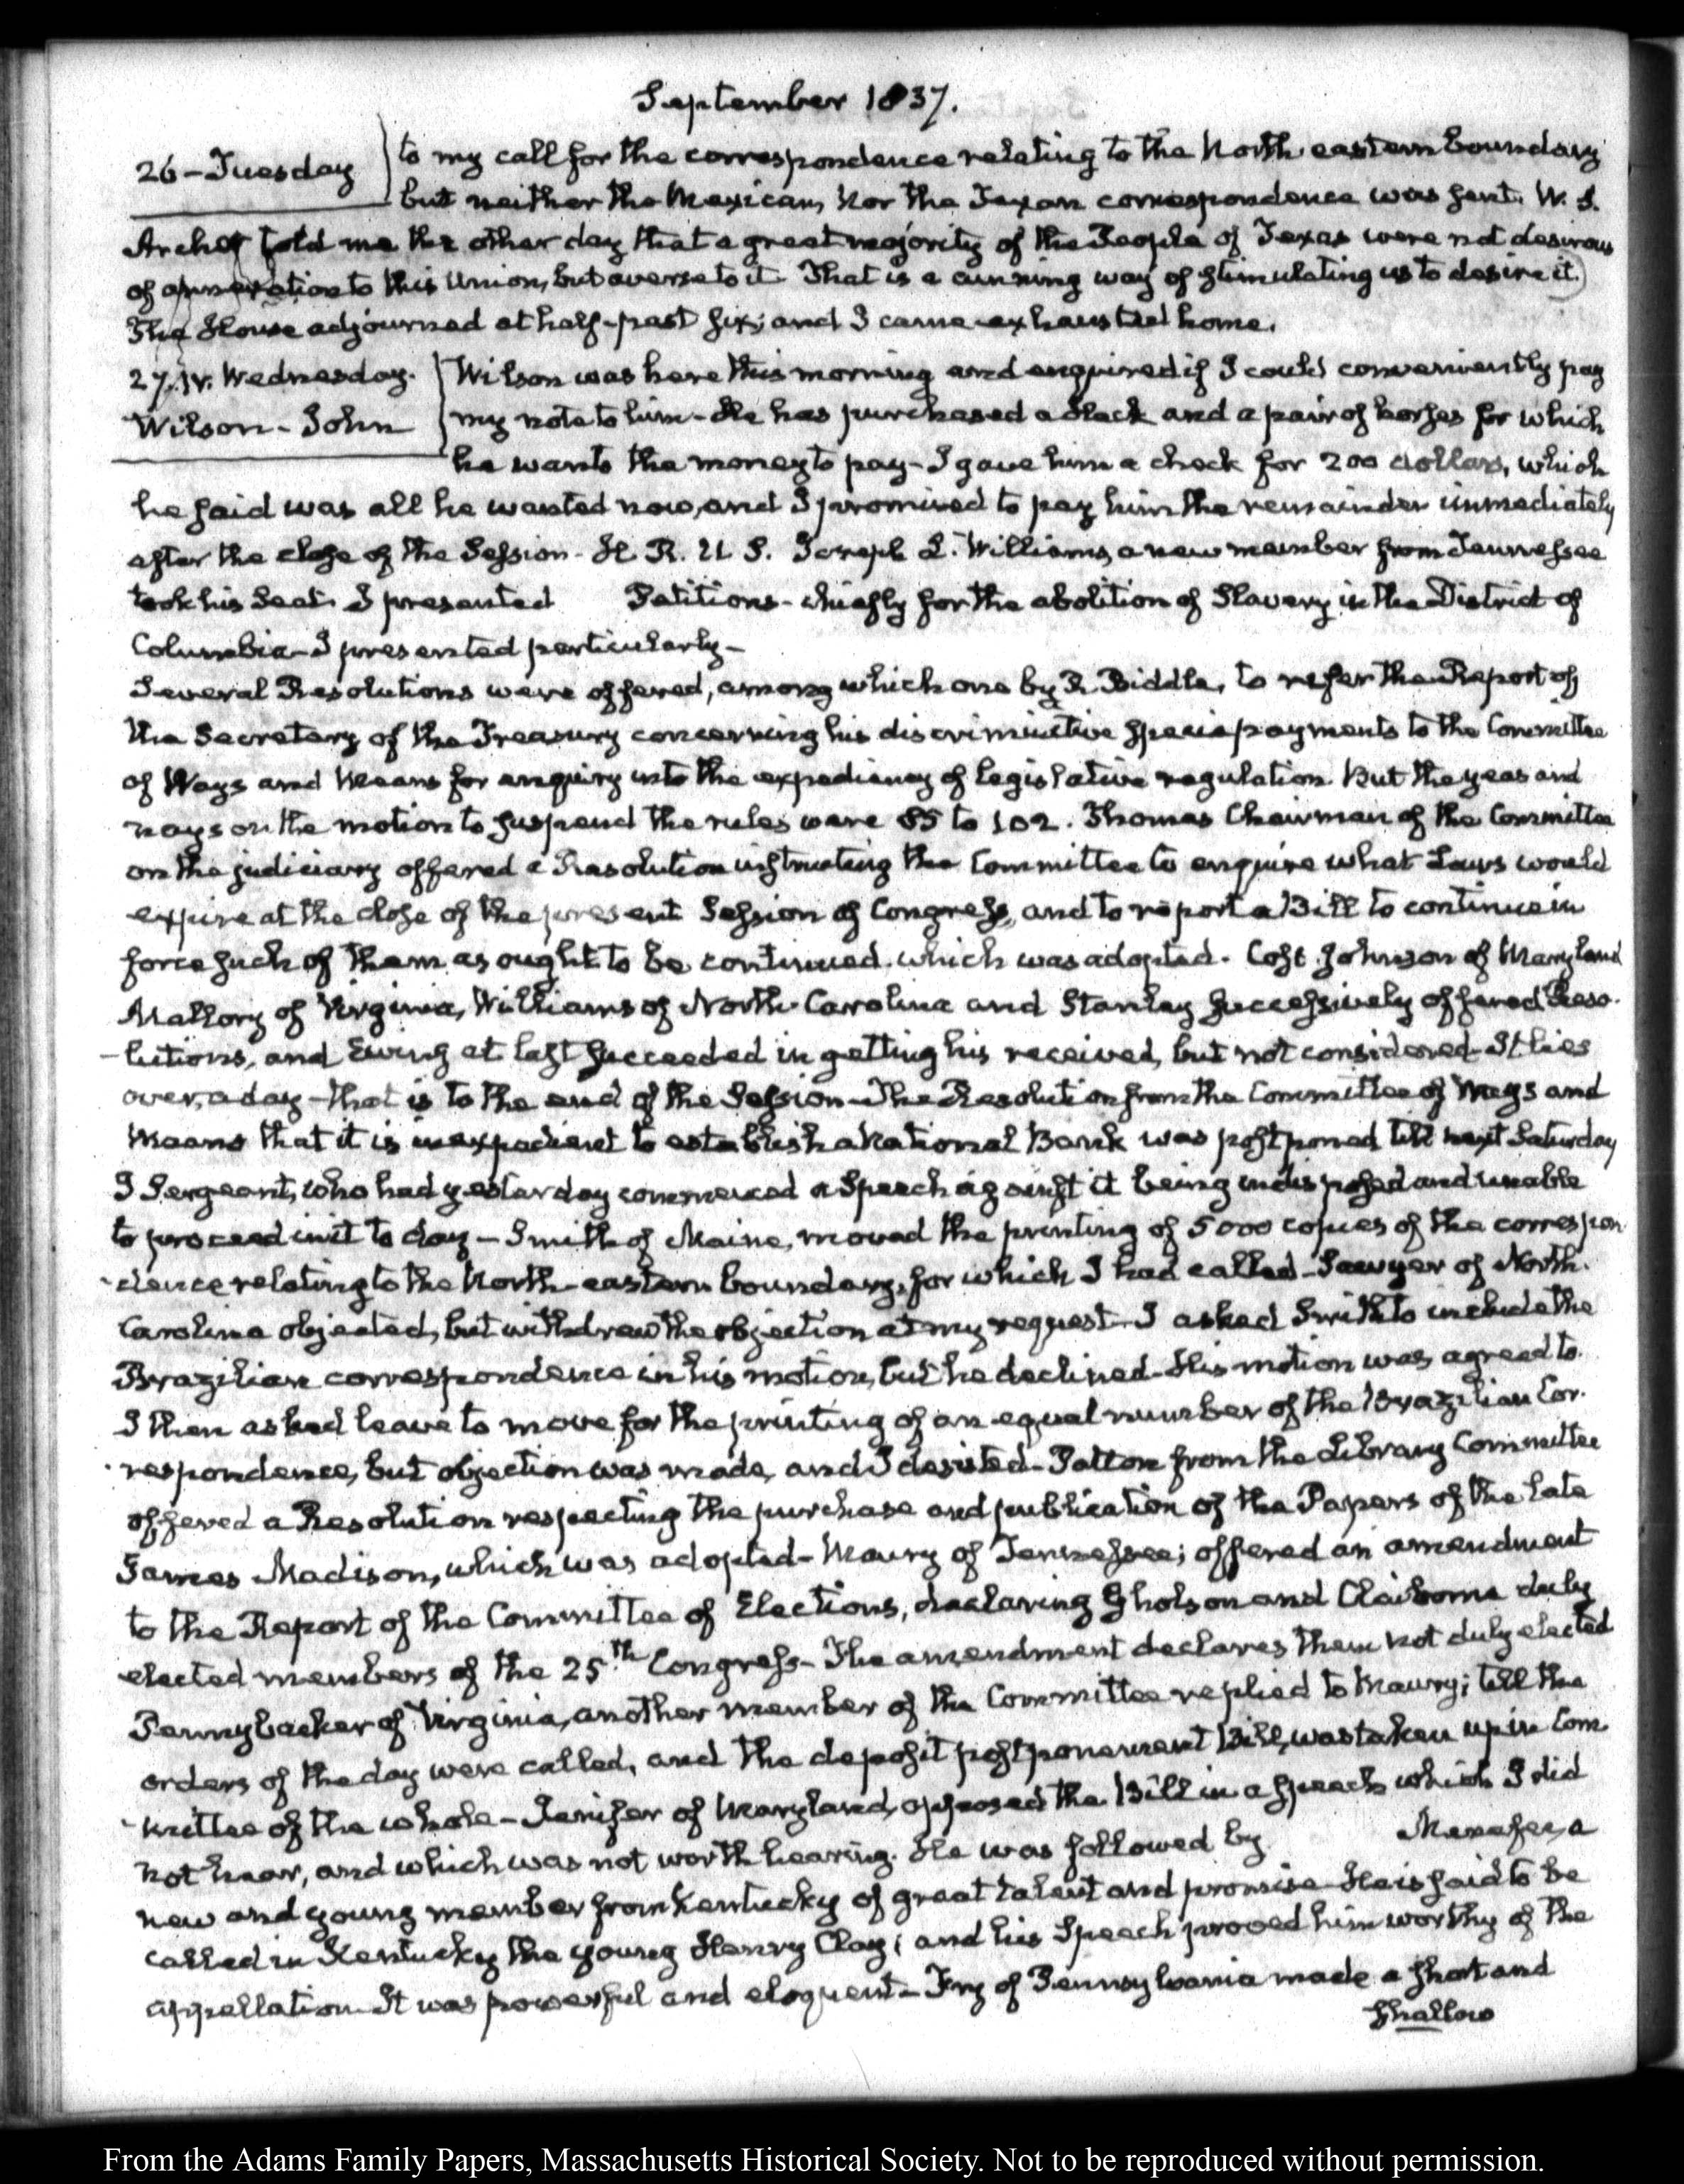 September 1837.
26 - Tuesday
to my call for the correspondence relating to the North eastern boundary
but neither the Mexican, nor the Texan correspondence was sent. W. S.
Archer told me the other day that a great majority of the People of Texas were not desirous
of annexation to this Union, but averse to it. That is a cunning way of stimulating us to desire it.
The House adjourned at half-past six; and I came exhausted home.
27. IV. Wednesday.
Wilson - John
Wilson was here this morning and enquired if I could conveniently pay
my note to him - He has purchased a Hack and a pair of horses for which
he wants the money to pay - I gave him a check for 200 dollars, which
he said was all he wanted now, and I promised to pay him the remainder immediately
after the close of the Session - H. R. U S. Joseph L. Williams, a new member from Tennessee
took his Seat. I presented Petitions - chiefly for the abolition of Slavery in the District of
Columbia - I presented particularly -
Several Resolutions were offered, among which one by R. Biddle, to refer the Report of
the Secretary of the Treasury concerning his discriminative specie payments to the Committee
of Ways and Means for enquiry into the expediency of legislative regulation. But the yeas and
nays on the motion to suspend the rules were 85 to 102. Thomas Chairman of the Committee
on the judiciary offered a Resolution instructing the Committee to enquire what Laws would
expire at the close of the present Session of Congress, and to report a Bill to continue in
force such of them as ought to be continued. which was adopted. Cost Johnson of Maryland
Mallory of Virginia, Williams of North-Carolina and Stanley successively offered Reso-
-lutions, and Ewing at last succeeded in getting his received, but not considered - It lies
over, a day - that is to the end of the Session - The Resolution from the Committee of Ways and
Means that it is inexpedient to establish a National Bank was postponed till next Saturday
J Sergeant, who had yesterday commenced a Speech against it being indisposed and unable
to proceed in it to day - Smith of Maine, moved the printing of 5000 copies of the correspon
-dence relating to the North-eastern boundary, for which I had called - Sawyer of North-
Carolina objected, but withdrew the objection at my request - I asked Smith to include the
Brazilian correspondence in his motion, but he declined - His motion was agreed to.
I then asked leave to move for the printing of an equal number of the Brazilian Cor-
-respondence, but objection was made, and I desisted - Patton from the Library Committee
offered a Resolution respecting the purchase and publication of the Papers of the late
James Madison, which was adopted - Maury of Tennessee; offered an amendment
to the Report of the Committee of Elections, declaring Gholson and Claiborne duly
elected members of the 25.th Congress - The amendment declares them not duly elected
Pennybacker of Virginia, another member of the Committee replied to Maury; till the
orders of the day were called, and the deposit postponement Bill, was taken up in Com-
-mittee of the whole - Jenifer of Maryland, opposed the Bill in a speech which I did
not hear, and which was not worth hearing. He was followed by Menefee, a
new and young member from Kentucky of great talent and promise - He is said to be
called in Kentucky the young Henry Clay; and his Speech proved him worthy of the
appellation - It was powerful and eloquent - Fry of Pennsylvania made a short and
shallow
From the Adams Family Papers, Massachusetts Historical Society. Not to be reproduced without permission.